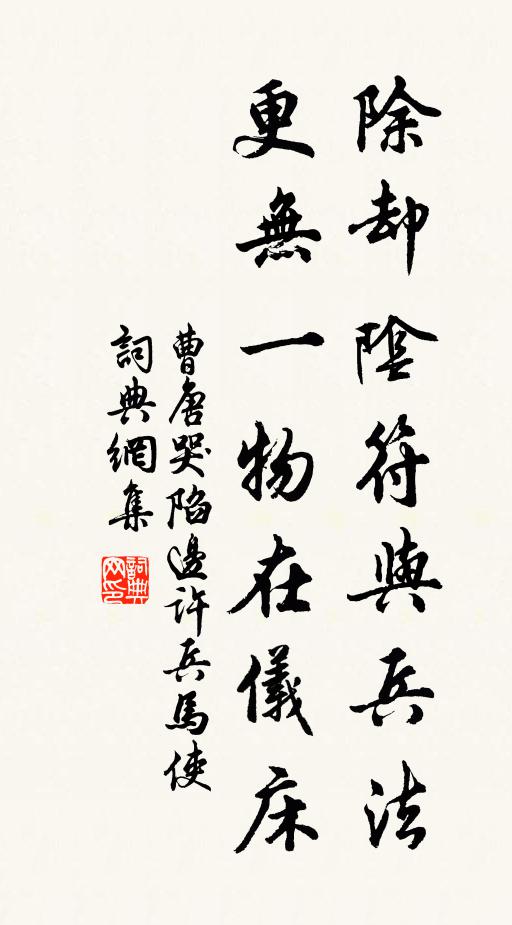 除却陰符與兵法
更無一物在儀床
曹唐哭陷邊許兵馬使
詞典網集
詞典
网印